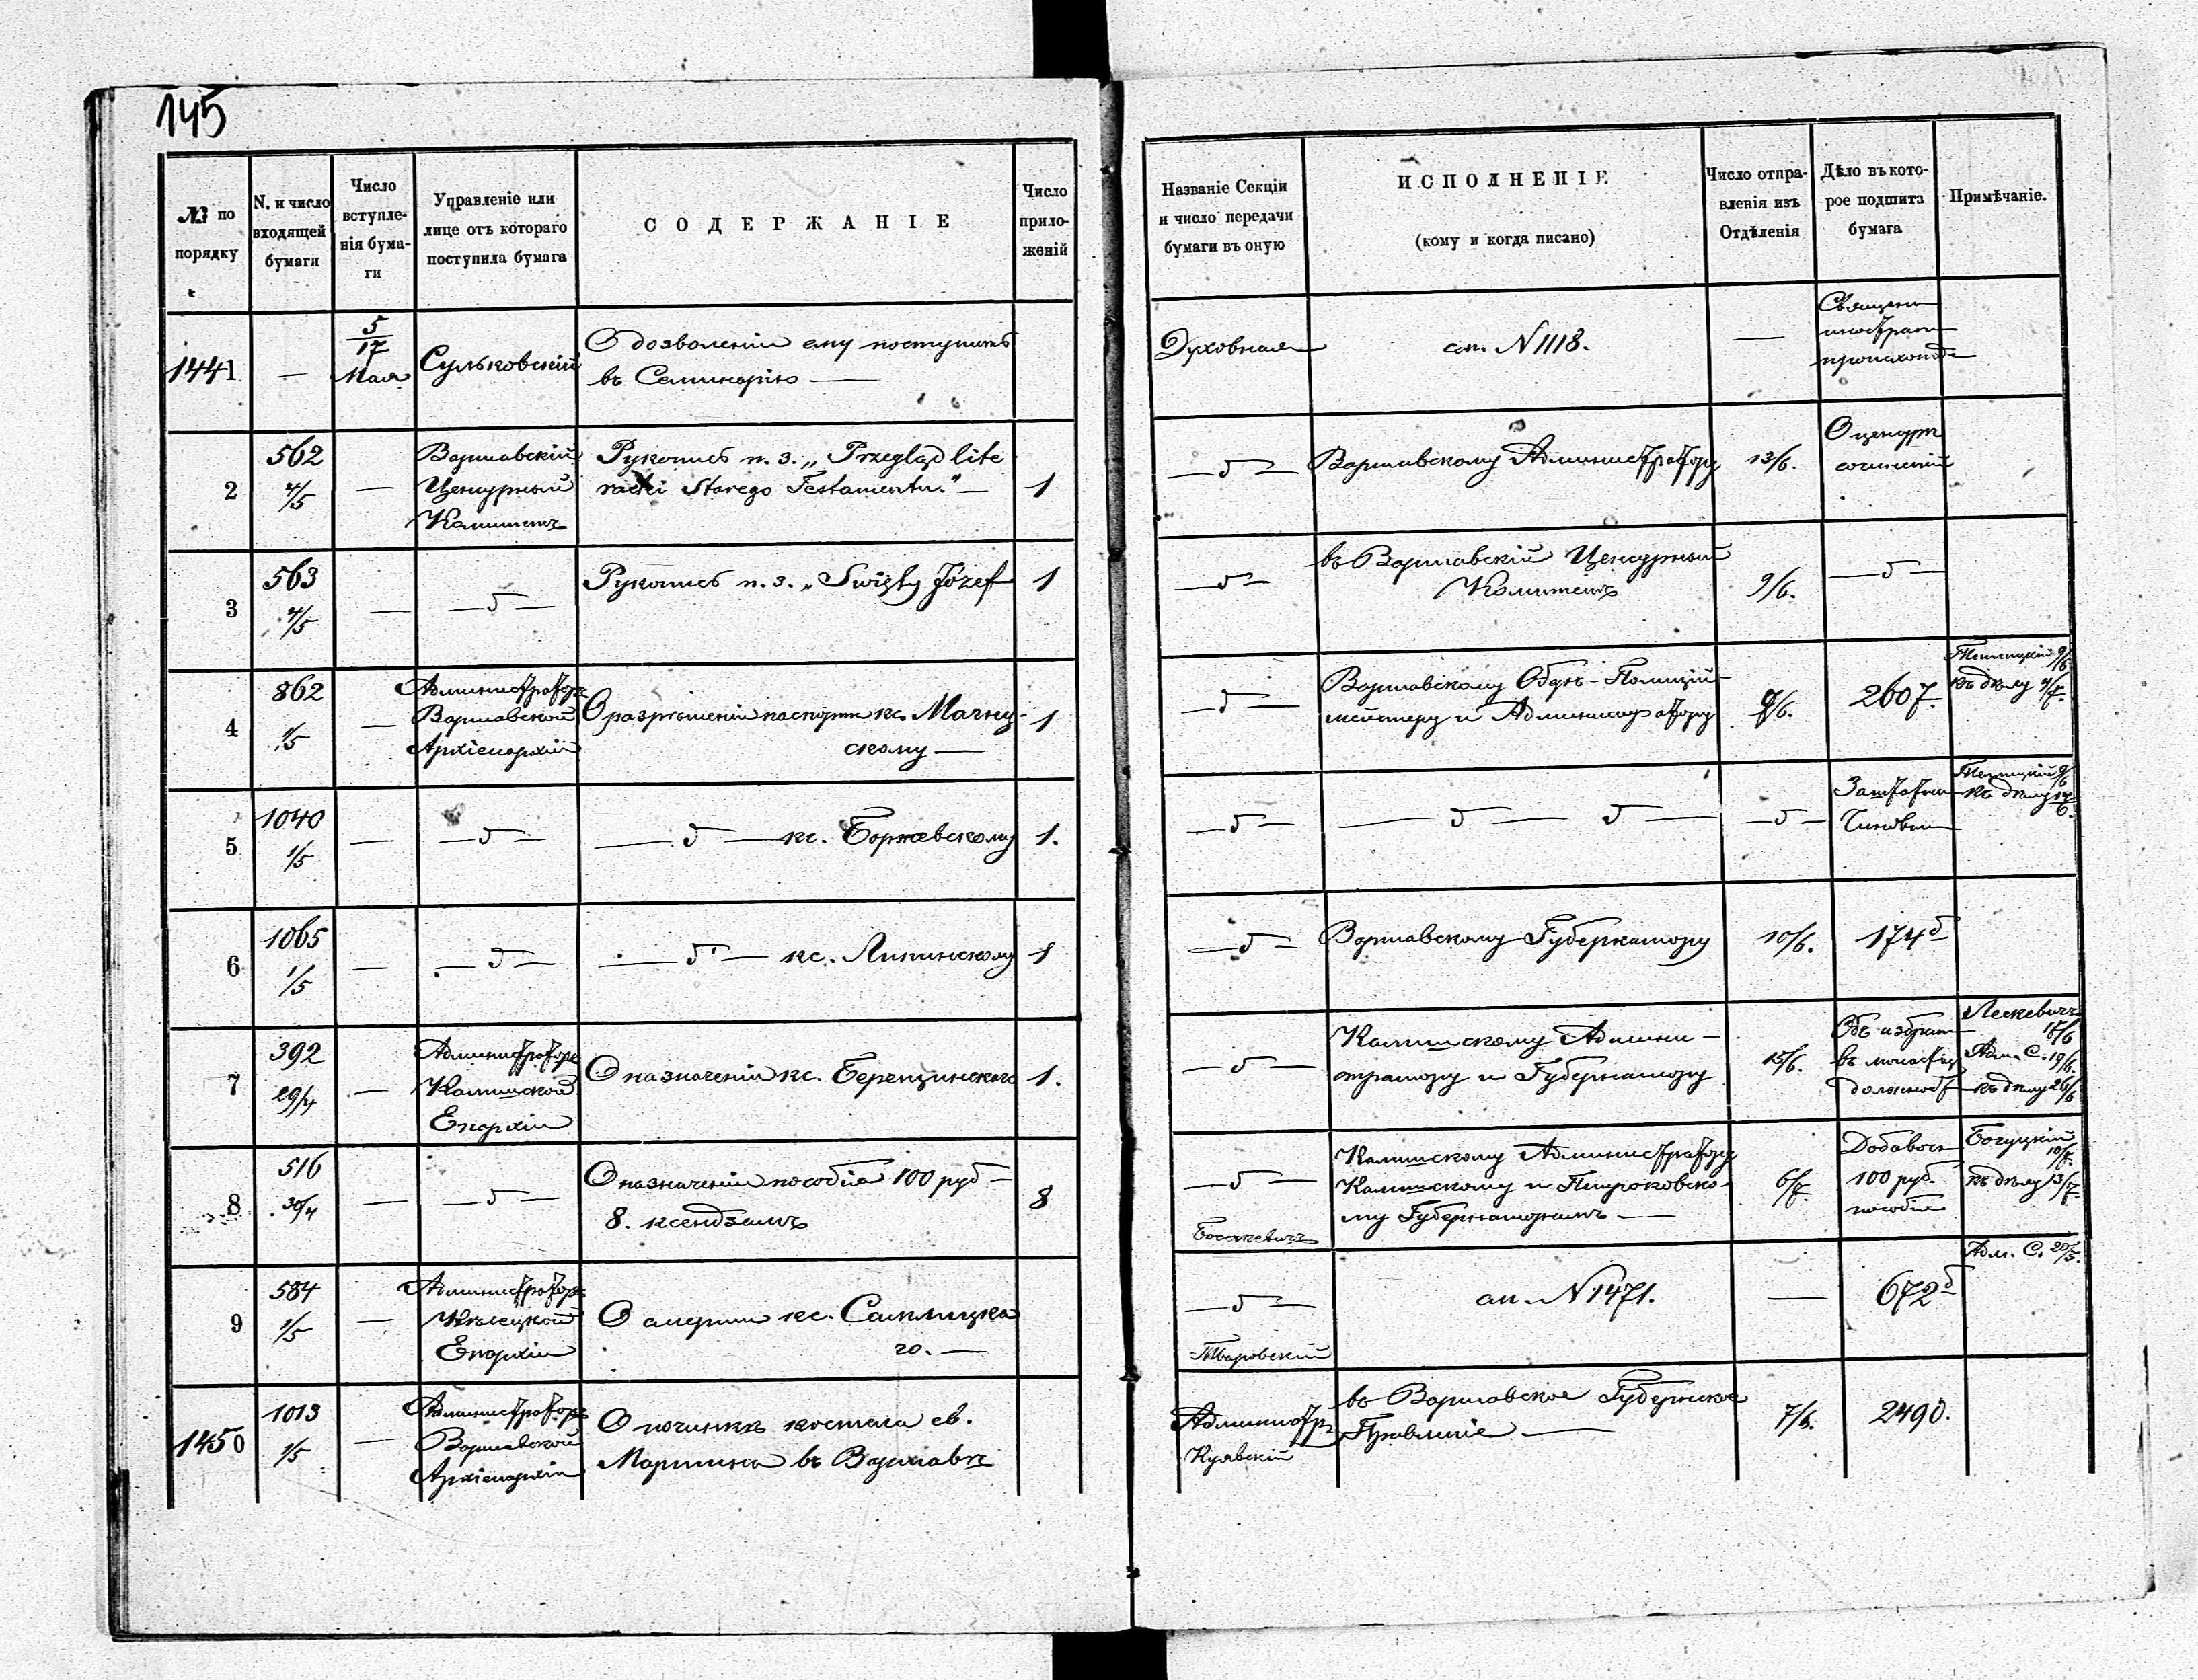 145
№ по
порядку
N. и число
входящей
бумаги
Число
вступле-
нія бума-
ги
Управленіе или
лице отъ котораго
поступила бумага
СОДЕРЖАНІЕ
Число
прило-
женій
Названіе Секціи
и число передачи
бумаги въ оную
ИСПОЛНЕНІЕ
(кому и когда писано)
Число отпра-
вленія изъ
Отдѣленія
Дѣло въ кото-
рое подшита
бумага
Примѣчаніе.
1441
—
5/17
Мая
Сульковскій
О дозволеніи ему поступить
въ Семинарію —
Духовная
см. N 1118.
—
Священ
иностран
происхожде
2
562
4/5
—
Варшавскій
Цензурный
Комитетъ
Рукопись п. з. „Przegląd lite
racki Starego Testamentu." —
1
— б —
Варшавскому Администратору
13/6.
О цензурѣ
сочиненій
3
563
4/5
—
— б —
Рукопись п. з. „Swięty Józef
1
— б —
въ Варшавскій Цензурный
Комитетъ
9/6.
— б —
4
862
1/5
—
Администраторъ
Варшавской
Архіепархіи
О разрѣшеніи паспорта кс. Мачу-
скому —
1
— б —
Варшавскому Оберъ-Полицій-
мейстеру и Администратору
9/6.
2607.
9/6
къ дѣлу 4/7.
5
1040
1/5
—
— б —
— б — кс. Боржевскому
1.
— б —
— б — б —
— б —
Заштатн
9/6
къ дѣлу 17/6.
6
1065
1/5
—
— б —
— б — кс. Липинскому
1
— б —
Варшавскому Губернатору
10/6.
174б
7
392
29/4
—
Администраторъ
Калишской
Епархіи
О назначеніи кс. Беренцинскаго
1.
— б —
Калишскому Админи-
стратору и Губернатору
15/6.
Объ избран
въ монастыр
должност
Лескевичъ
17/6
Адм. С. 19/6.
къ дѣлу 26/6
8
516
30/4
—
— б —
О назначеніи пособія 100 руб —
8. ксендзамъ
8
— б —
Босякевичъ
Калишскому Администратору
Калишскому и Петроковско-
му Губернаторамъ —
6/7.
Добавоч
100 руб.
пособіе
Богуцкій
10/7.
къ дѣлу 13/7.
9
584
1/5
—
Администраторъ
Кѣлецкой
Епархіи
О смерти кс. Саплицка
го. —
— б —
Тваровскій
см. N 1471.
—
672б
Адм. С. 20/5.
1450
1013
1/5
—
Администраторъ
Варшавской
Архіепархіи
О починкѣ костела св.
Мартина въ Варшавѣ
Администр
Куявскій
въ Варшавское Губернское
Правленіе —
7/6.
2490.